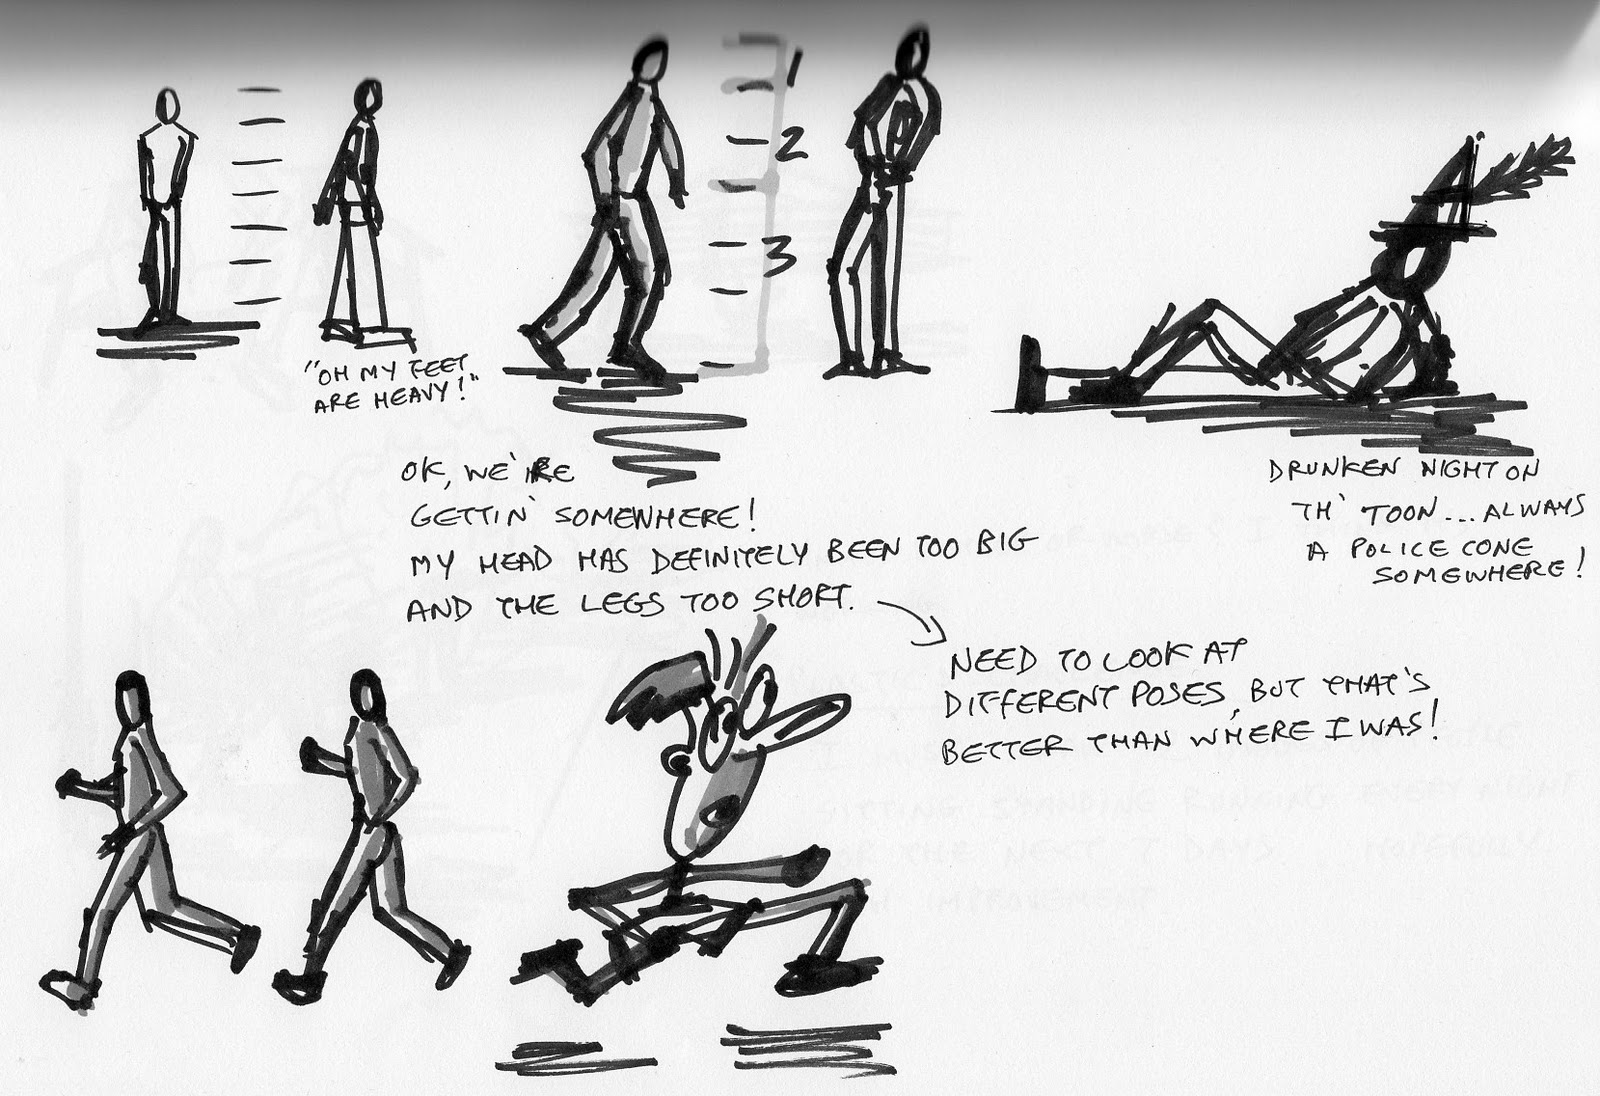 1
2
3
"OH MY FEET
ARE HEAVY!"
OK, WE'RE
GETTIN' SOMEWHERE!
MY HEAD HAS DEFINITELY BEEN TOO BIG
AND THE LEGS TOO SHORT.
DRUNKEN NIGHT ON
TH' TOON... ALWAYS
A POLICE CONE
SOMEWHERE!
NEED TO LOOK AT
DIFFERENT POSES, BUT THAT'S
BETTER THAN WHERE I WAS!